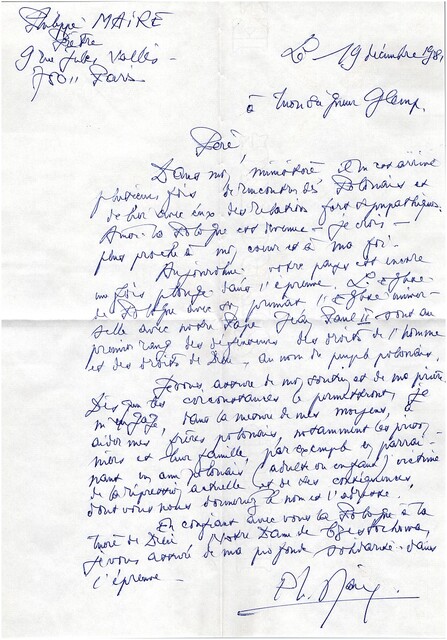 Philippe MAIRE
Prêtre
9 rue Jules Vallès -
75011 Paris
Le 19 décembre 1981
à Monseigneur Glemp.
Père,
Dans mon ministère il m'est arrivé
plusieurs fois de rencontrer des Polonais et
de lier avec eux des relations fort sympathiques.
Ainsi la Pologne est devenue - je crois -
plus proche à mon coeur et à ma foi.
Aujourd'hui votre pays est encore
une fois plongé dans l'épreuve. L'Eglise
de Pologne avec son primat, l'Eglise univer-
selle avec notre Pape Jean Paul II sont au
premier rang des défenseurs des droits de l'homme
et des droits de Dieu, au nom du peuple polonais.
Je vous assure de mon soutien et de ma prière.
Dès que les circonstances le permettront, je
m'engage, dans la mesure de mes moyens, à
aider mes frères polonais, notamment les prison-
niers et leur famille, par exemple en parrai-
nant un ami polonais adulte ou enfant victime
de la répression actuelle et de ses conséquences,
dont vous nous donnerez le nom et l'adresse.
En confiant avec vous la Pologne à la
Mère de Dieu Notre Dame de Czestochowa,
je vous assure de ma profonde solidarité dans
l'épreuve -
Ph. Maire